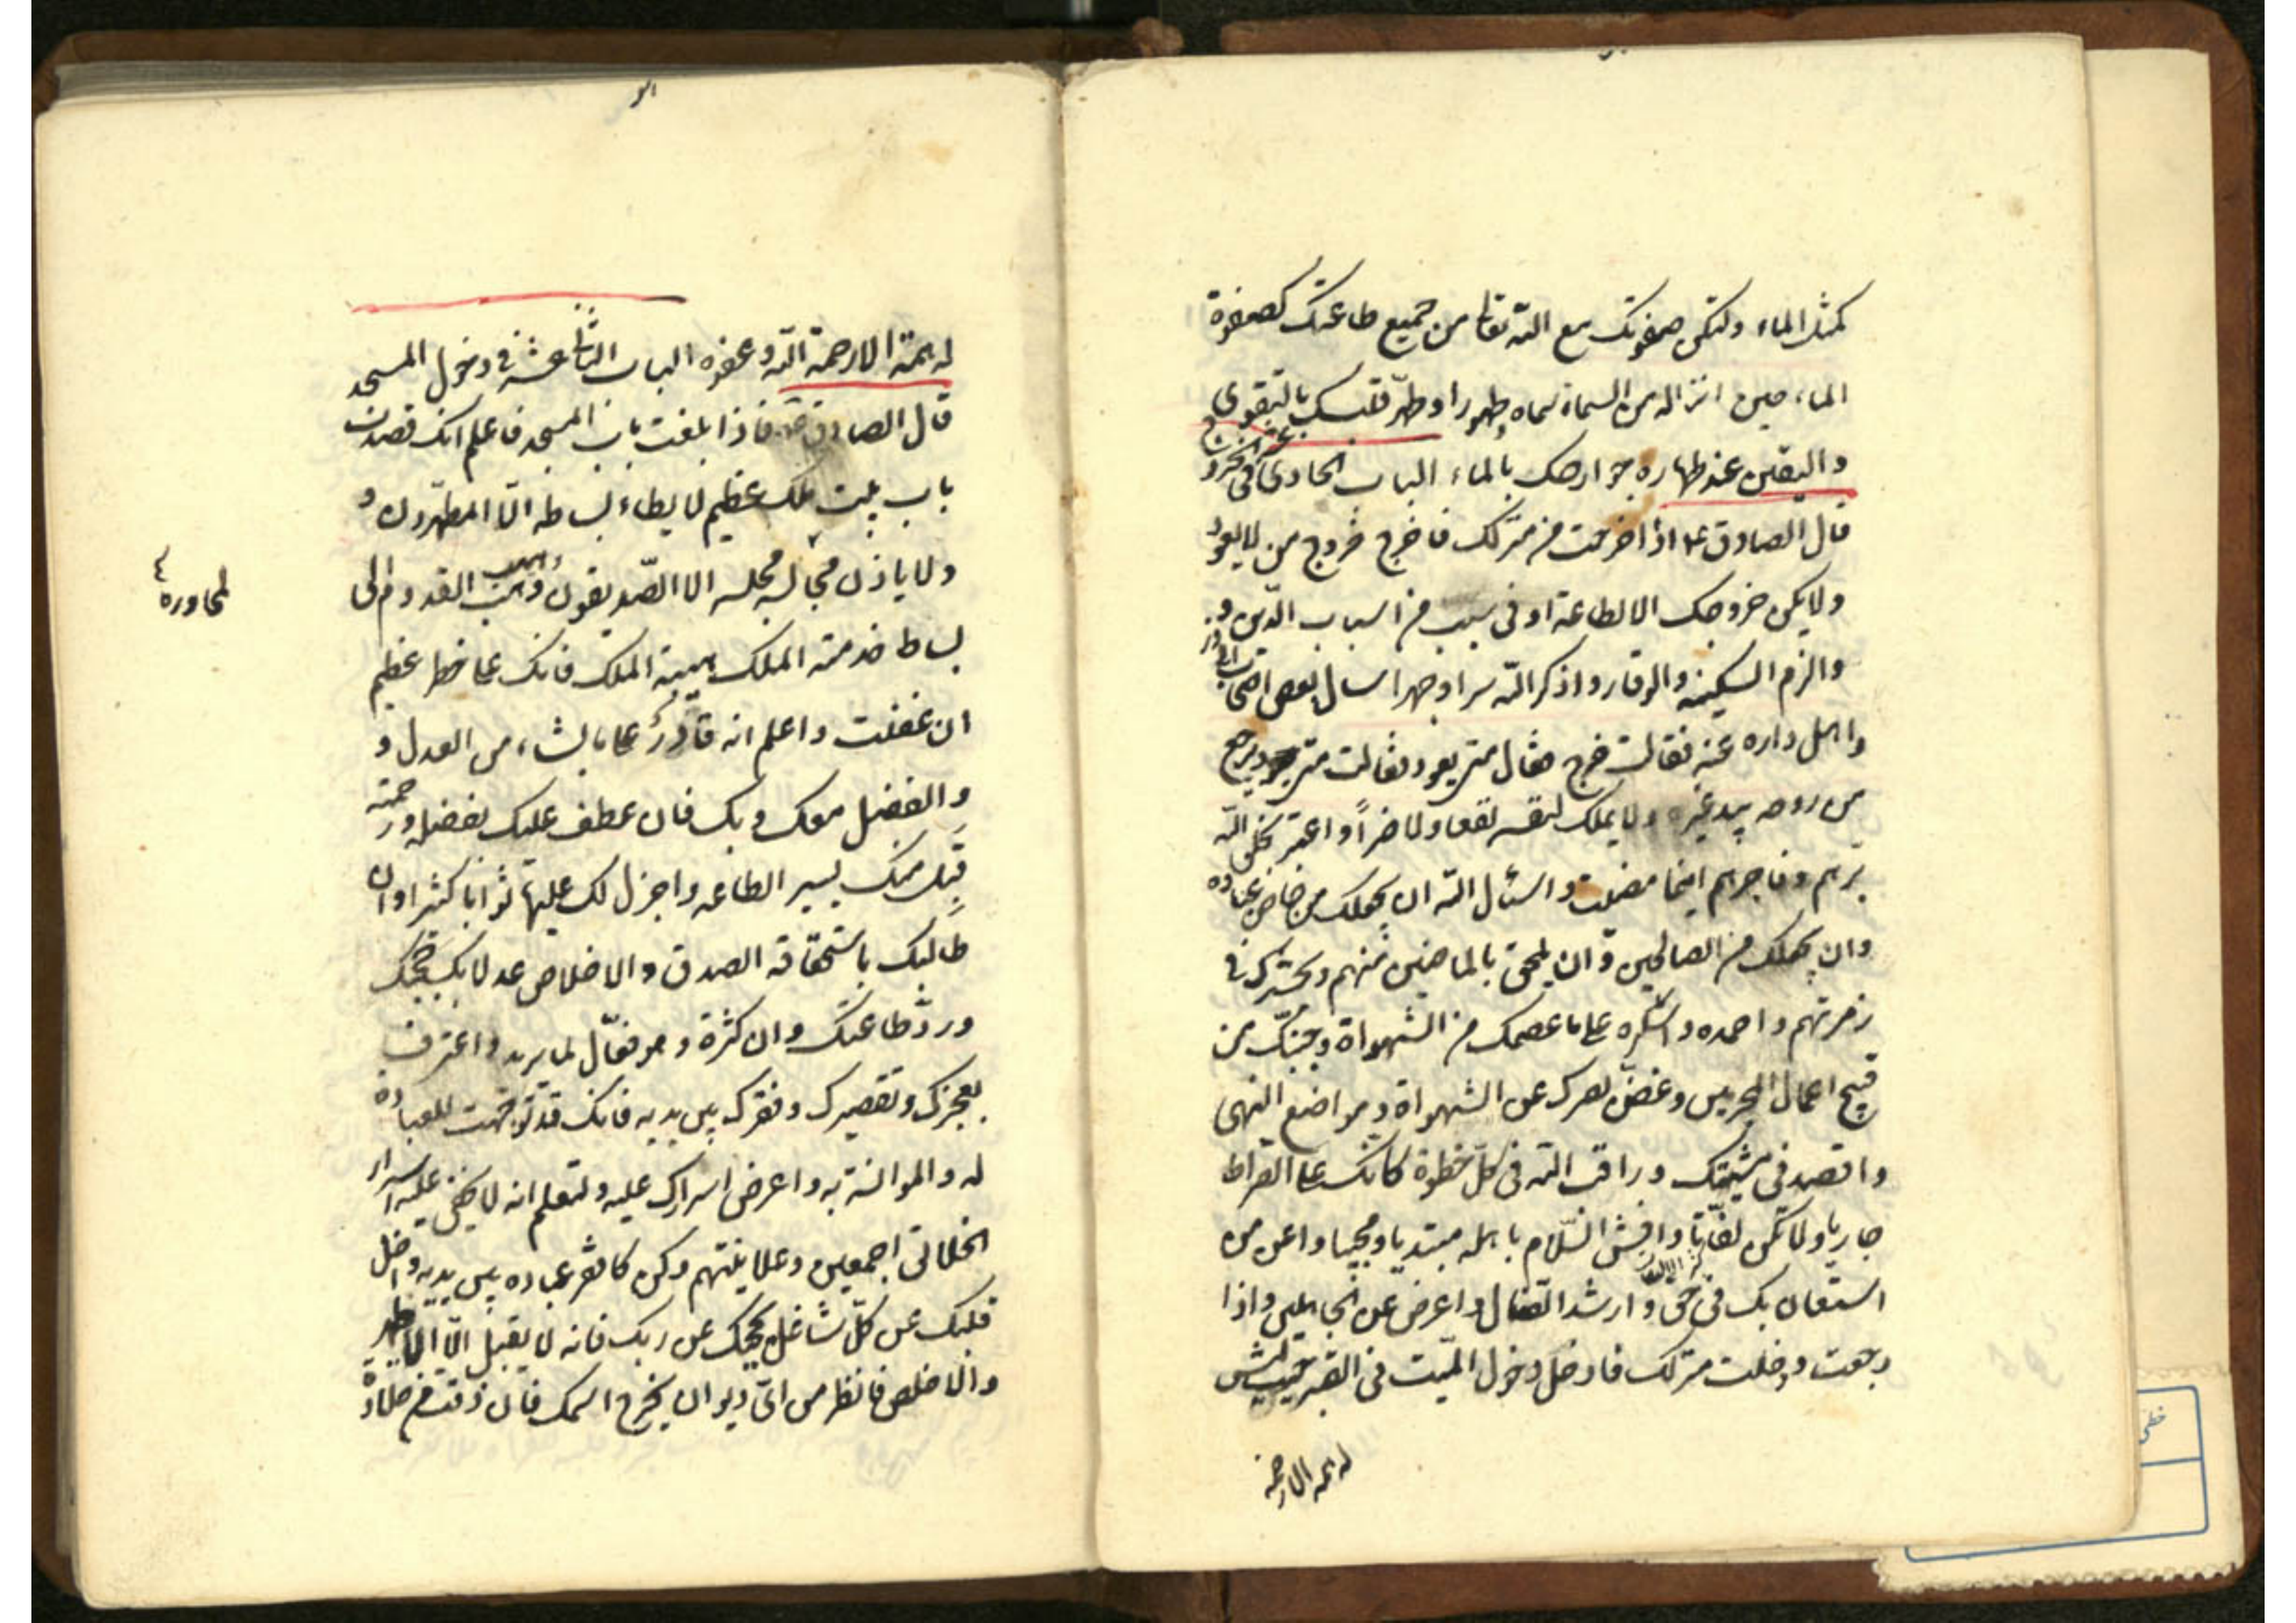 كمثل الماء ولتكن صفوتك مع الله تعا من جميع طاعتك كصفوة
الماء حين انزاله من السماء سماه طهورا وطهّر قلبك بالتقوى
واليقين عند طهاره جوارحك بالماء الباب الحادي عشر في الخروج
قال الصادق ع اذا خرجت من منزلك فاخرج خروج من لا يعود
ولا يكن خروجك الا لطاعة او في سبب من اسباب الدين و
والزم السكينه والوقار واذكر الله سرا وجهرا سال بعض اصحاب ابي ذر
واهل داره عنه فقالت خرج فقال متى يعود فقالت متى يرجع
من روحه بيد غيره ولا يملك لنفسه نفعا ولا ضراً واعتبر بخلق الله
برّهم وفاجرهم اينما مضيت واسئل الله ان يجعلك من خاص عباده
وان يجعلك من الصالحين وان يلحق بالماضين منهم ويحشرك في
زمرتهم واحمده واشكره على ما عصمك من الشهواة وجنبّك من
قبيح اعمال المجرمين وغضّ بصرك عن الشهواة ومواضع النهى
واقصد في مشيتك وراقب الله في كلّ خطوة كانك على الصراط
جاريا ولا تكن لفّاتا وافش السّلام باهله مبتديا ومجيبا واعن من
استعان بك في حق وارشد الضال واعرض عن الجاهلين واذا
رجعت ودخلت منزلك فادخل دخول الميّت في القبر حيث ليس
له همه الا رحمة
له همّة الا رحمة الله وعفوه الباب الثاني عشر في دخول المسجد
قال الصادق ع فاذا بلغت باب المسجد فاعلم انك قصدت
باب بيت ملك عظيم لا يطاء بساطه الّا المطهّرون و
ولا ياذن مجالسة مجلسه الا الصّديقون وهب القدوم الى
بساط خدمته الملك هيبة الملك فانك على خطر عظيم
ان غفلت واعلم انه قادر على ما يشاء من العدل و
والفضل معك وبك فان عطف عليك بفضله ورحمته
قبل منك يسير الطاعه واجزل لك عليها ثوابا كثيرا وان
طالبك باستحقاقه الصدق والاخلاص عدلا بك حجبك
وردّ طاعتك وان كثرة وهو فعّال لما يريد واعترف
بعجزك وتقصيرك وفقرك بين يديه فانك قد توجّهت للعباده
له والموانسة به واعرض اسرارك عليه ولتعلم انه لا يخفى عليه اسرار
الخلائق اجمعين وعلانيتهم وكن كافقر عباده بين يديه واخل
قلبك عن كلّ شاغل يحجبك عن ربك فانه لا يقبل الّا الاطهر
والاخلص فانظر من اىّ ديوان يخرج اسمك فان ذقت من حلاوة